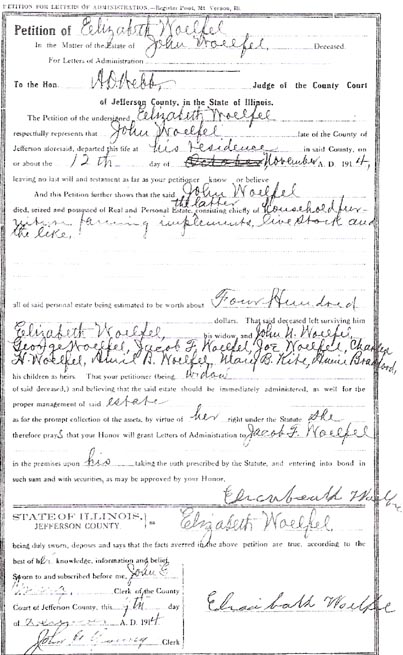 PETITION FOR LETTERS OF ADMINISTRATION.—Register Print, Mt. Vernon, Ill.
Petition of Elizabeth Woelfel
In the Matter of the Estate of John Woelfel, Deceased.
For Letters of Administration
To the Hon. A.D. Webb, Judge of the County Court
of Jefferson County, in the State of Illinois.
The Petition of the undersigned Elizabeth Woelfel
respectfully represents that John Woelfel late of the County of
Jefferson aforesaid, departed this life at his residence in said County, on
or about the 12th day of October November A. D. 1914,
leaving no last will and testament as far as your petitioner know or believe
And this Petition further shows that the said John Woelfel
the latter
died, seized and possessed of Real and Personal Estate, consisting chiefly of household fur-
niture farming implements, live stock and
the like,
all of said personal estate being estimated to be worth about Four Hundred
dollars. That said deceased left surviving him
Elizabeth Woelfel, his widow, and John W. Woelfel,
George Woelfel, Jacob F. Woelfel, Joe Woelfel, Charles
H. Woelfel, B. Woelfel, Mary B. Kite, Annie Bradford,
his children as heirs. That your petitioner (being widow
of said deceased,) and believing that the said estate should be immediately administered, as well for the
proper management of said estate
as for the prompt collection of the assets, by virtue of her right under the Statute she
therefore prays that your Honor will grant Letters of Administration to Jacob F. Woelfel
in the premises upon his taking the oath prescribed by the Statute, and entering into bond in
such sum and with securities, as may be approved by your Honor.
Woelfel
STATE OF ILLINOIS,
JEFFERSON COUNTY. ss Elizabeth Woelfel
being duly sworn, deposes and says that the facts averred in the above petition are true, according to the
best of her knowledge, information and belief.
Sworn to and subscribed before me, John
Clerk of the County
Court of Jefferson County, this 7th day
of A. D. 1914
John Clerk
Woelfel